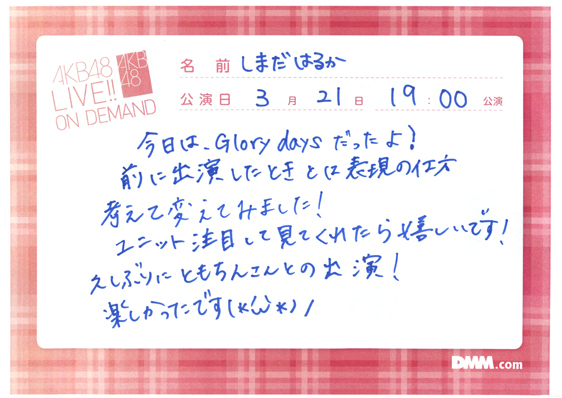 AKB48
LIVE!!
ON DEMAND
AKB
48
名 前 しまだはるか
公演日 3 月 21 日 19:00 公演
今日は、Glory daysだったよ!
前に出演したときとは表現の仕方
考えて変えてみました!
ユニット注目して見てくれたら嬉しいです!
えしぶりにともちんさんとの出演!
楽しかったです(*'ω'*)ノ
DMM.com